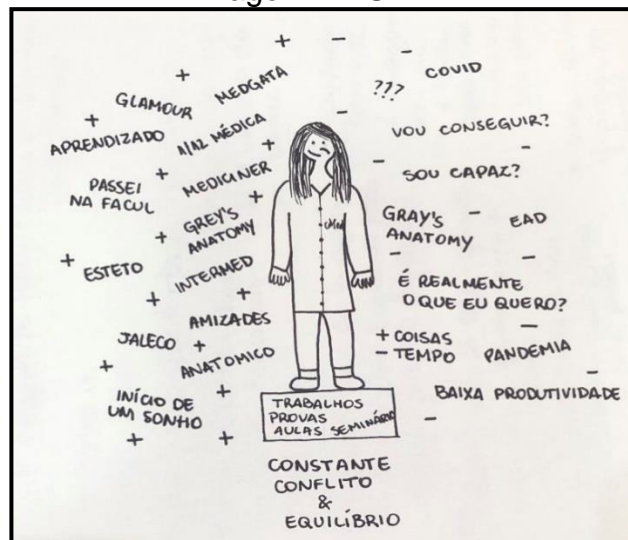 GLAMOUR
MEDGATA
APRENDIZADO
1/12 MÉDICA
PASSEI
NA FACUL
MEDICINER
GREY'S
ANATOMY
ESTETO
INTERMED
AMIZADES
JALECO
ANATOMICO
INÍCIO DE
UM SONHO
???
COVID
VOU CONSEGUIR?
SOU CAPAZ?
GRAY'S
ANATOMY
EAD
É REALMENTE
O QUE EU QUERO?
+ COISAS
- TEMPO
PANDEMIA
BAIXA PRODUTIVIDADE
TRABALHOS
PROVAS
AULAS SEMINÁRIO
CONSTANTE
CONFLITO
&
EQUILÍBRIO